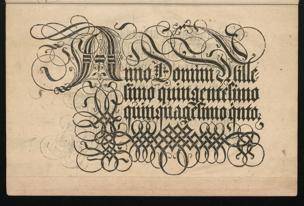 Anno Domini Mille
simo quingentesimo
quinquagesimo quīto.